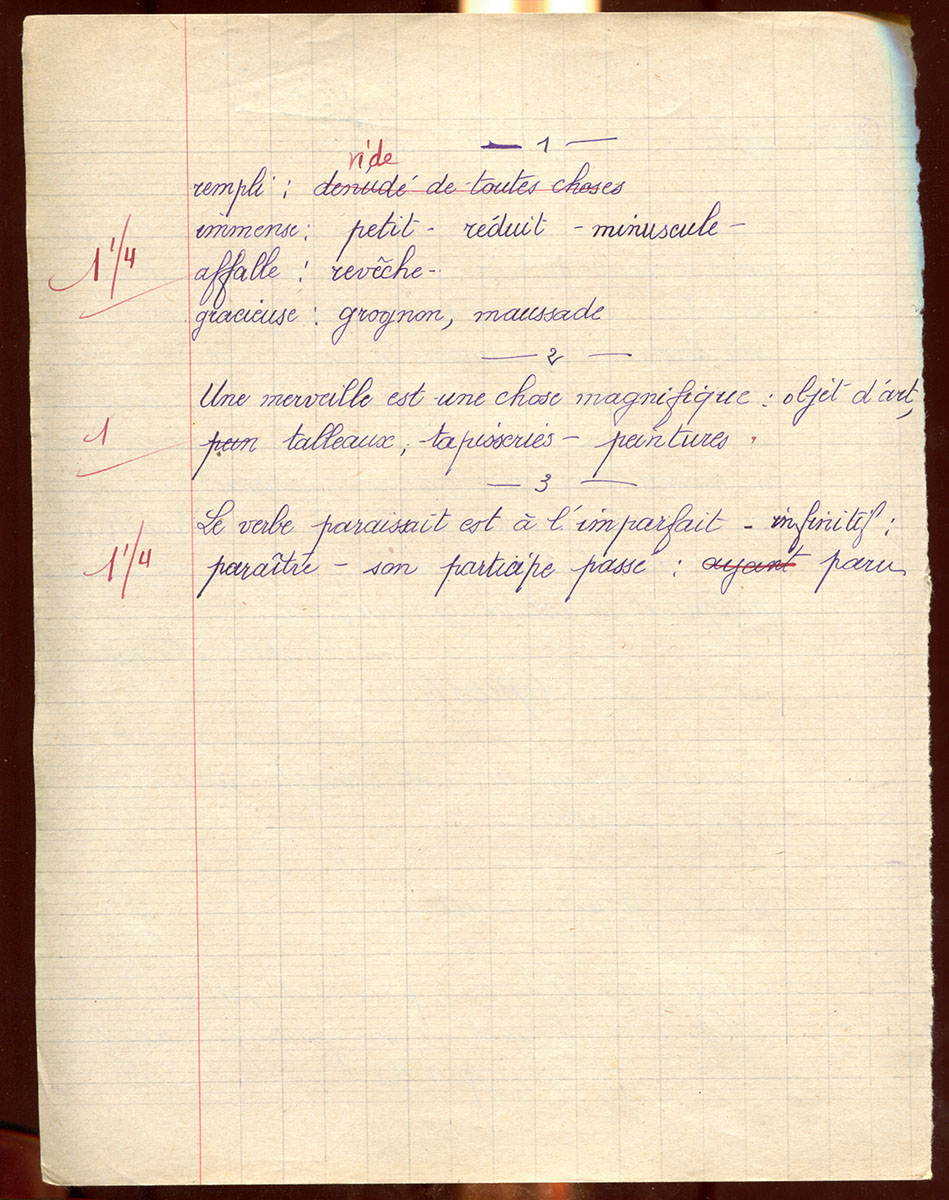 — 1 —
vide
rempli : denudé de toutes choses
immense : petit - réduit - minuscule -
1 1/4
affable : revêche -
gracieuse : grognon, maussade
— 2 —
Une merveille est une chose magnifique : objet d'art,
1
pein tableaux, tapisseries - peintures.
— 3 —
Le verbe paraissait est à l'imparfait - infinitif :
1 1/4
paraître - son participe passé : ayant paru